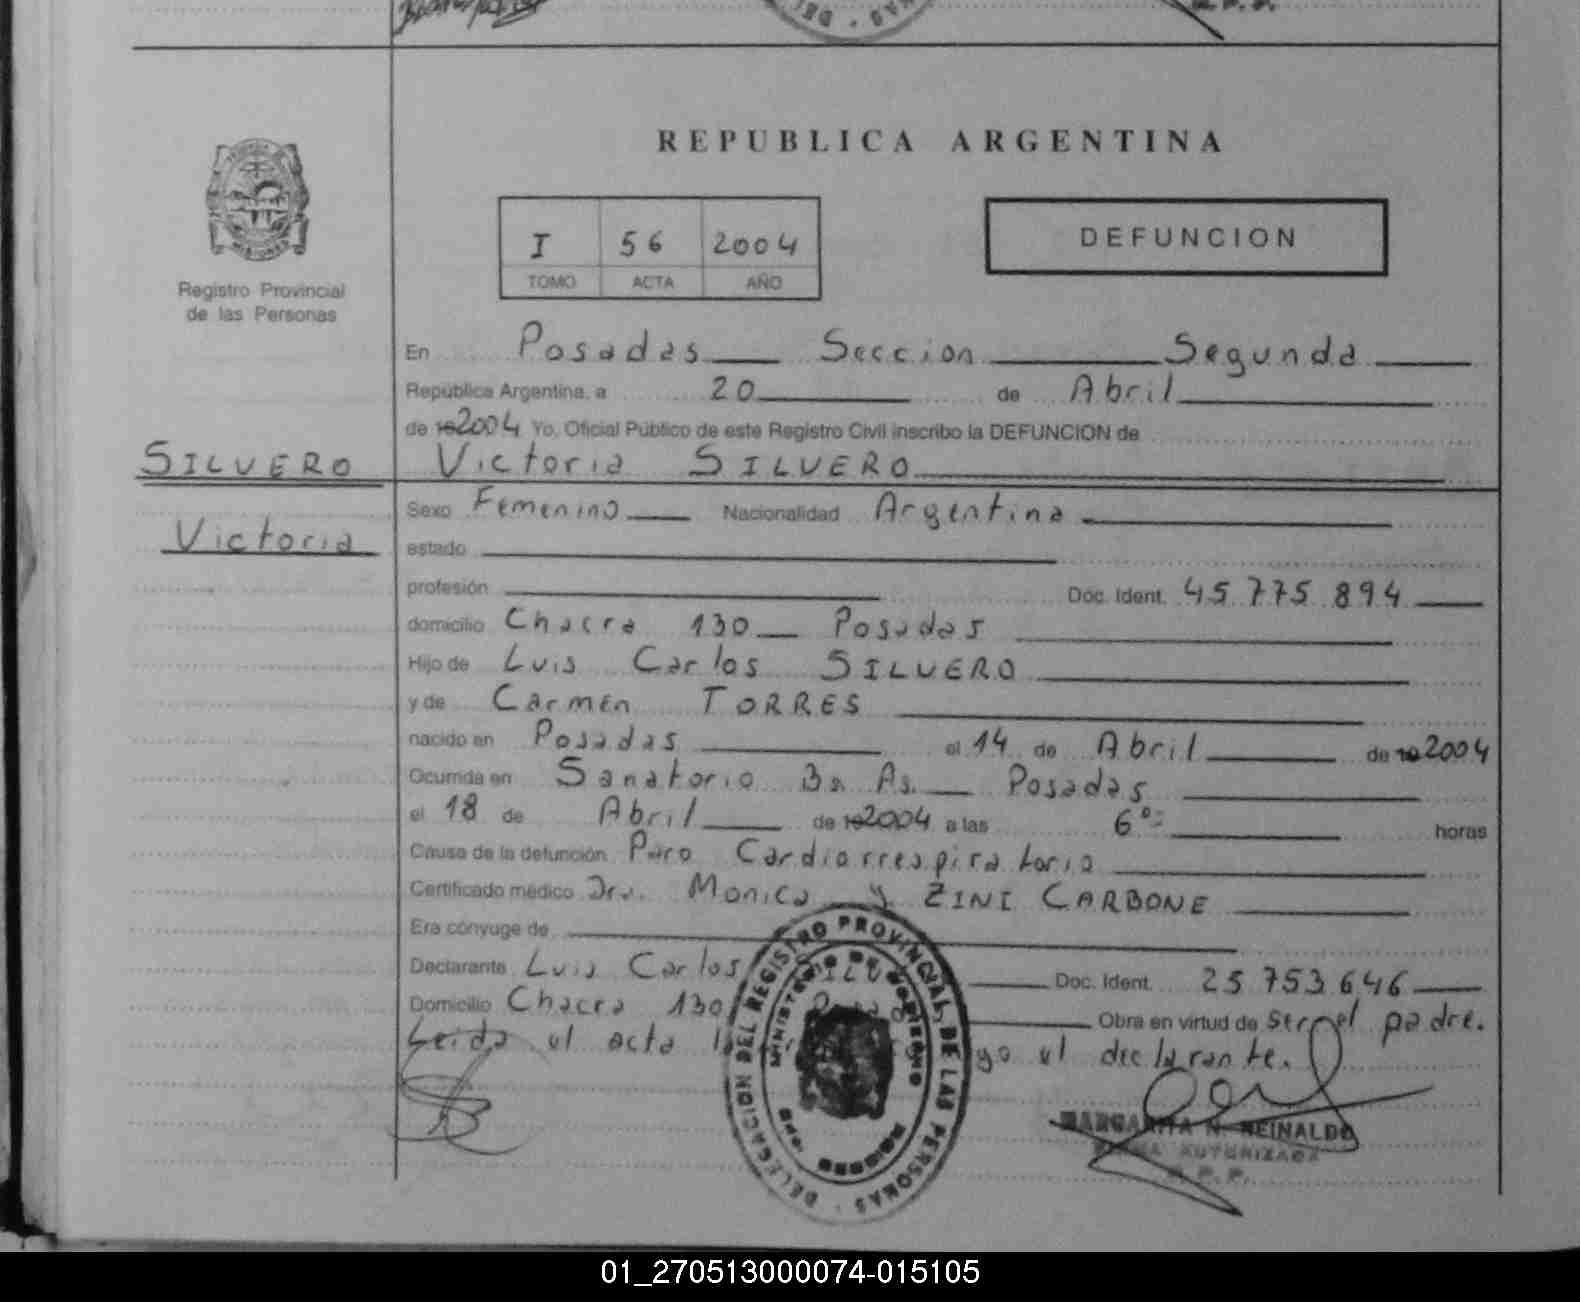 REPUBLICA ARGENTINA
I 56 2004
TOMO ACTA AÑO
DEFUNCION
Registro Provincial
de las Personas
En Posadas Seccion Segunda
República Argentina, a 20 de Abril
de 19 2004 Yo, Oficial Público de este Registro Civil inscribo la DEFUNCION de
SILVERO
Victoria SILVERO
Victoria
Sexo Femenino Nacionalidad Argentina
estado
profesión Doc. Ident. 45 775 894
domicilio Chacra 130 Posadas
Hijo de Luis Carlos SILVERO
y de Carmen TORRES
nacido en Posadas el 14 de Abril de 19 2004
Ocurrida en Sanatorio Bs. As. Posadas
el 18 de Abril de 19 2004 a las 6º= horas
Causa de la defunción Paro Cardiorrespiratorio
Certificado médico Dra. Monica Y. ZINI CARBONE
Era cónyuge de
Declarante Luis Carlos SILV Doc. Ident. 25 753 646
Domicilio Chacra 130 Posad Obra en virtud de ser el padre.
Leida el acta go el declarante.
DELEGACION DEL REGISTRO PROVINCIAL DE LAS PERSONAS
MINISTERIO DE GOBIERNO
MARGARITA N. REINALDO
FIRMA AUTORIZADA
R.P.P.
01_270513000074-015105